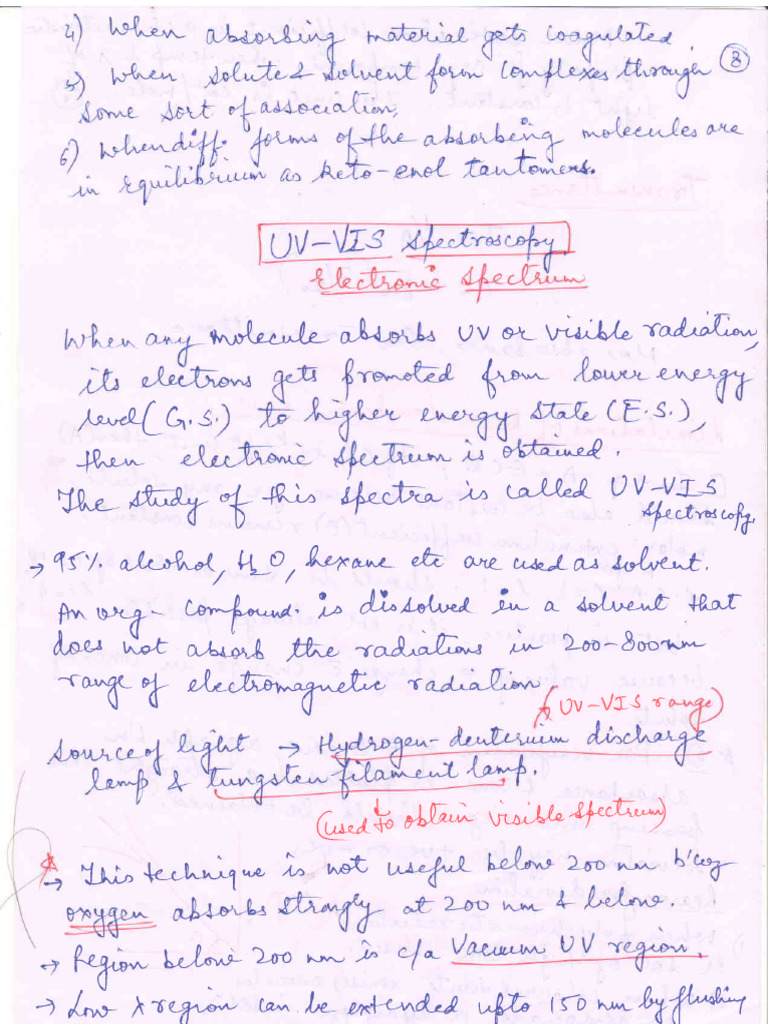 4) When absorbing material gets coagulated.
5) When solute & solvent form complexes through
some sort of association,
8
6) When diff. forms of the absorbing molecules are
in equilibrium as keto-enol tautomers.
UV-VIS Spectroscopy
Electronic Spectrum
When any molecule absorbs UV or visible radiation,
its electrons gets promoted from lower energy
level (G.S.) to higher energy state (E.S.),
then electronic spectrum is obtained.
The study of this spectra is called UV-VIS
spectroscopy.
→ 95% alcohol, H2O, hexane etc are used as solvent.
An org- compound. is dissolved in a solvent that
does not absorb the radiations in 200-800nm
range of electromagnetic radiation
(UV-VIS range)
Source of light → Hydrogen-deuterium discharge
lamp & tungsten-filament lamp.
(used to obtain visible spectrum)
→ This technique is not useful below 200 nm b'coz
oxygen absorbs strongly at 200 nm & below.
→ Region below 200 nm is c/a Vacuum UV region.
→ Low λ region can be extended upto 150 nm by flushing